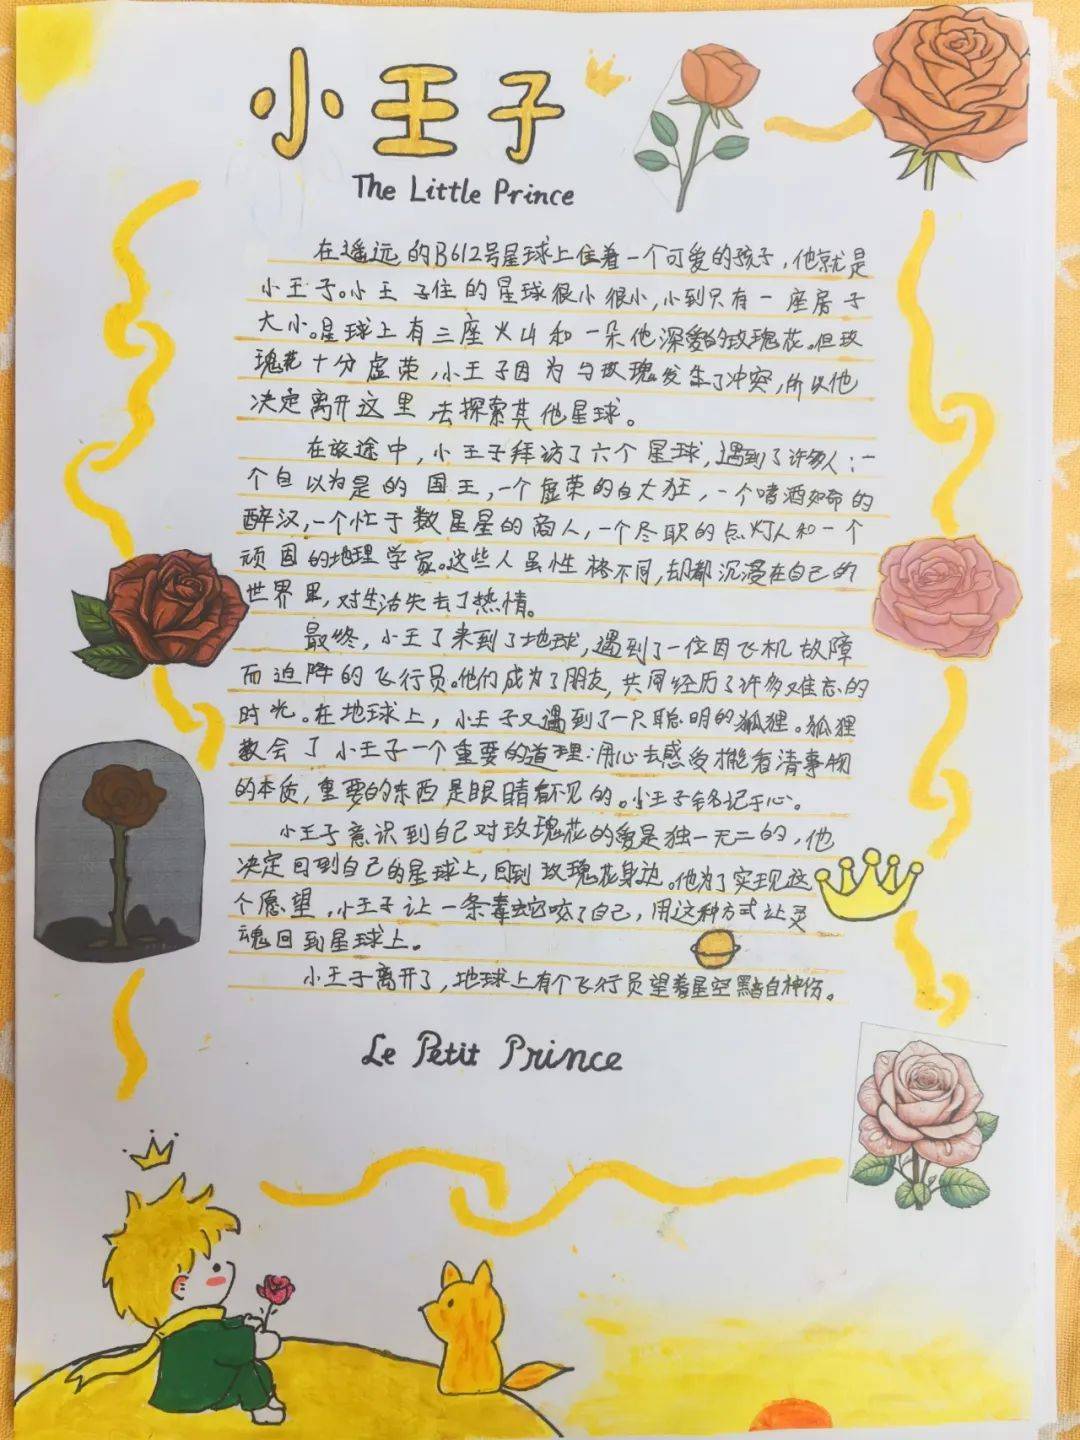 小王子
The Little Prince
在遥远的B612号星球上住着一个可爱的孩子，他就是
小王子。小王子住的星球很小很小，小到只有一座房子
大小。星球上有三座火山和一朵他深爱的玫瑰花。但玫
瑰花十分虚荣，小王子因为与玫瑰发生了冲突，所以他
决定离开这里，去探索其他星球。
在旅途中，小王子拜访了六个星球，遇到了许多人：一
个自以为是的国王，一个虚荣的自大狂，一个嗜酒如命的
醉汉，一个忙于数星星的商人，一个尽职的点灯人和一个
顽固的地理学家。这些人虽性格不同，却都沉浸在自己的
世界里，对生活失去了热情。
最终，小王子来到了地球，遇到了一位因飞机故障
而迫降的飞行员。他们成为了朋友，共同经历了许多难忘的
时光。在地球上，小王子又遇到了一只聪明的狐狸。狐狸
教会了小王子一个重要的道理：用心去感受才能看清事物
的本质，重要的东西是眼睛看不见的。小王子铭记于心。
小王子意识到自己对玫瑰花的爱是独一无二的，他
决定回到自己的星球上，回到玫瑰花身边。他为了实现这
个愿望，小王子让一条毒蛇咬了自己，用这种方式让灵
魂回到星球上。
小王子离开了，地球上有个飞行员望着星空黯自神伤。
Le Petit Prince